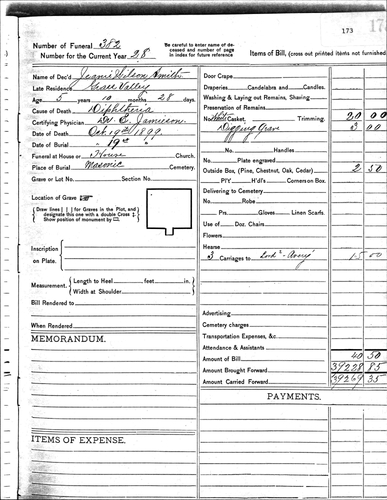 173
Number of Funeral 382
Number for the Current Year 28
Be careful to enter name of deceased and number of page in index for future reference
Items of Bill, (cross out printed items not furnished
Name of Dec'd Jeanie Wilson Smith
Late Residence Grass Valley
Age 5 years 10 months 28 days.
Cause of Death Diphtheria
Certifying Physician Dr C. Jamison
Date of Death Oct 19th 1899.
Date of Burial " 19th "
Funeral at House or House Church.
Place of Burial Masonic Cemetery.
Grave or Lot No. Section No.
Location of Grave
Draw lines for Graves in the Plot, and designate this one with a double Cross
Show position of monument by
Inscription on Plate.
Measurement. Length to Heel feet in.
Width at Shoulder
Bill Rendered to
When Rendered
MEMORANDUM.
ITEMS OF EXPENSE.
Door Crape
Draperies Candelabra and Candles.
Washing & Laying out Remains, Shaving.
Preservation of Remains
No. Casket, Trimming. 20 00
Digging Grave 3 00
No. Handles
Plate engraved
Outside Box, (Pine, Chestnut, Oak, Cedar) 2 50
P/V H'd'l's Corners on Box.
Delivering to Cemetery
No. Robe
Prs. Gloves Linen Scarfs.
Use of Doz. Chairs
Flowers
Hearse
3 Carriages to 15 00
Advertising
Cemetery charges
Transportation Expenses, &c.
Attendance & Assistants
Amount of Bill 40 50
Amount Brought Forward 39228 85
Amount Carried Forward 39269 35
PAYMENTS.